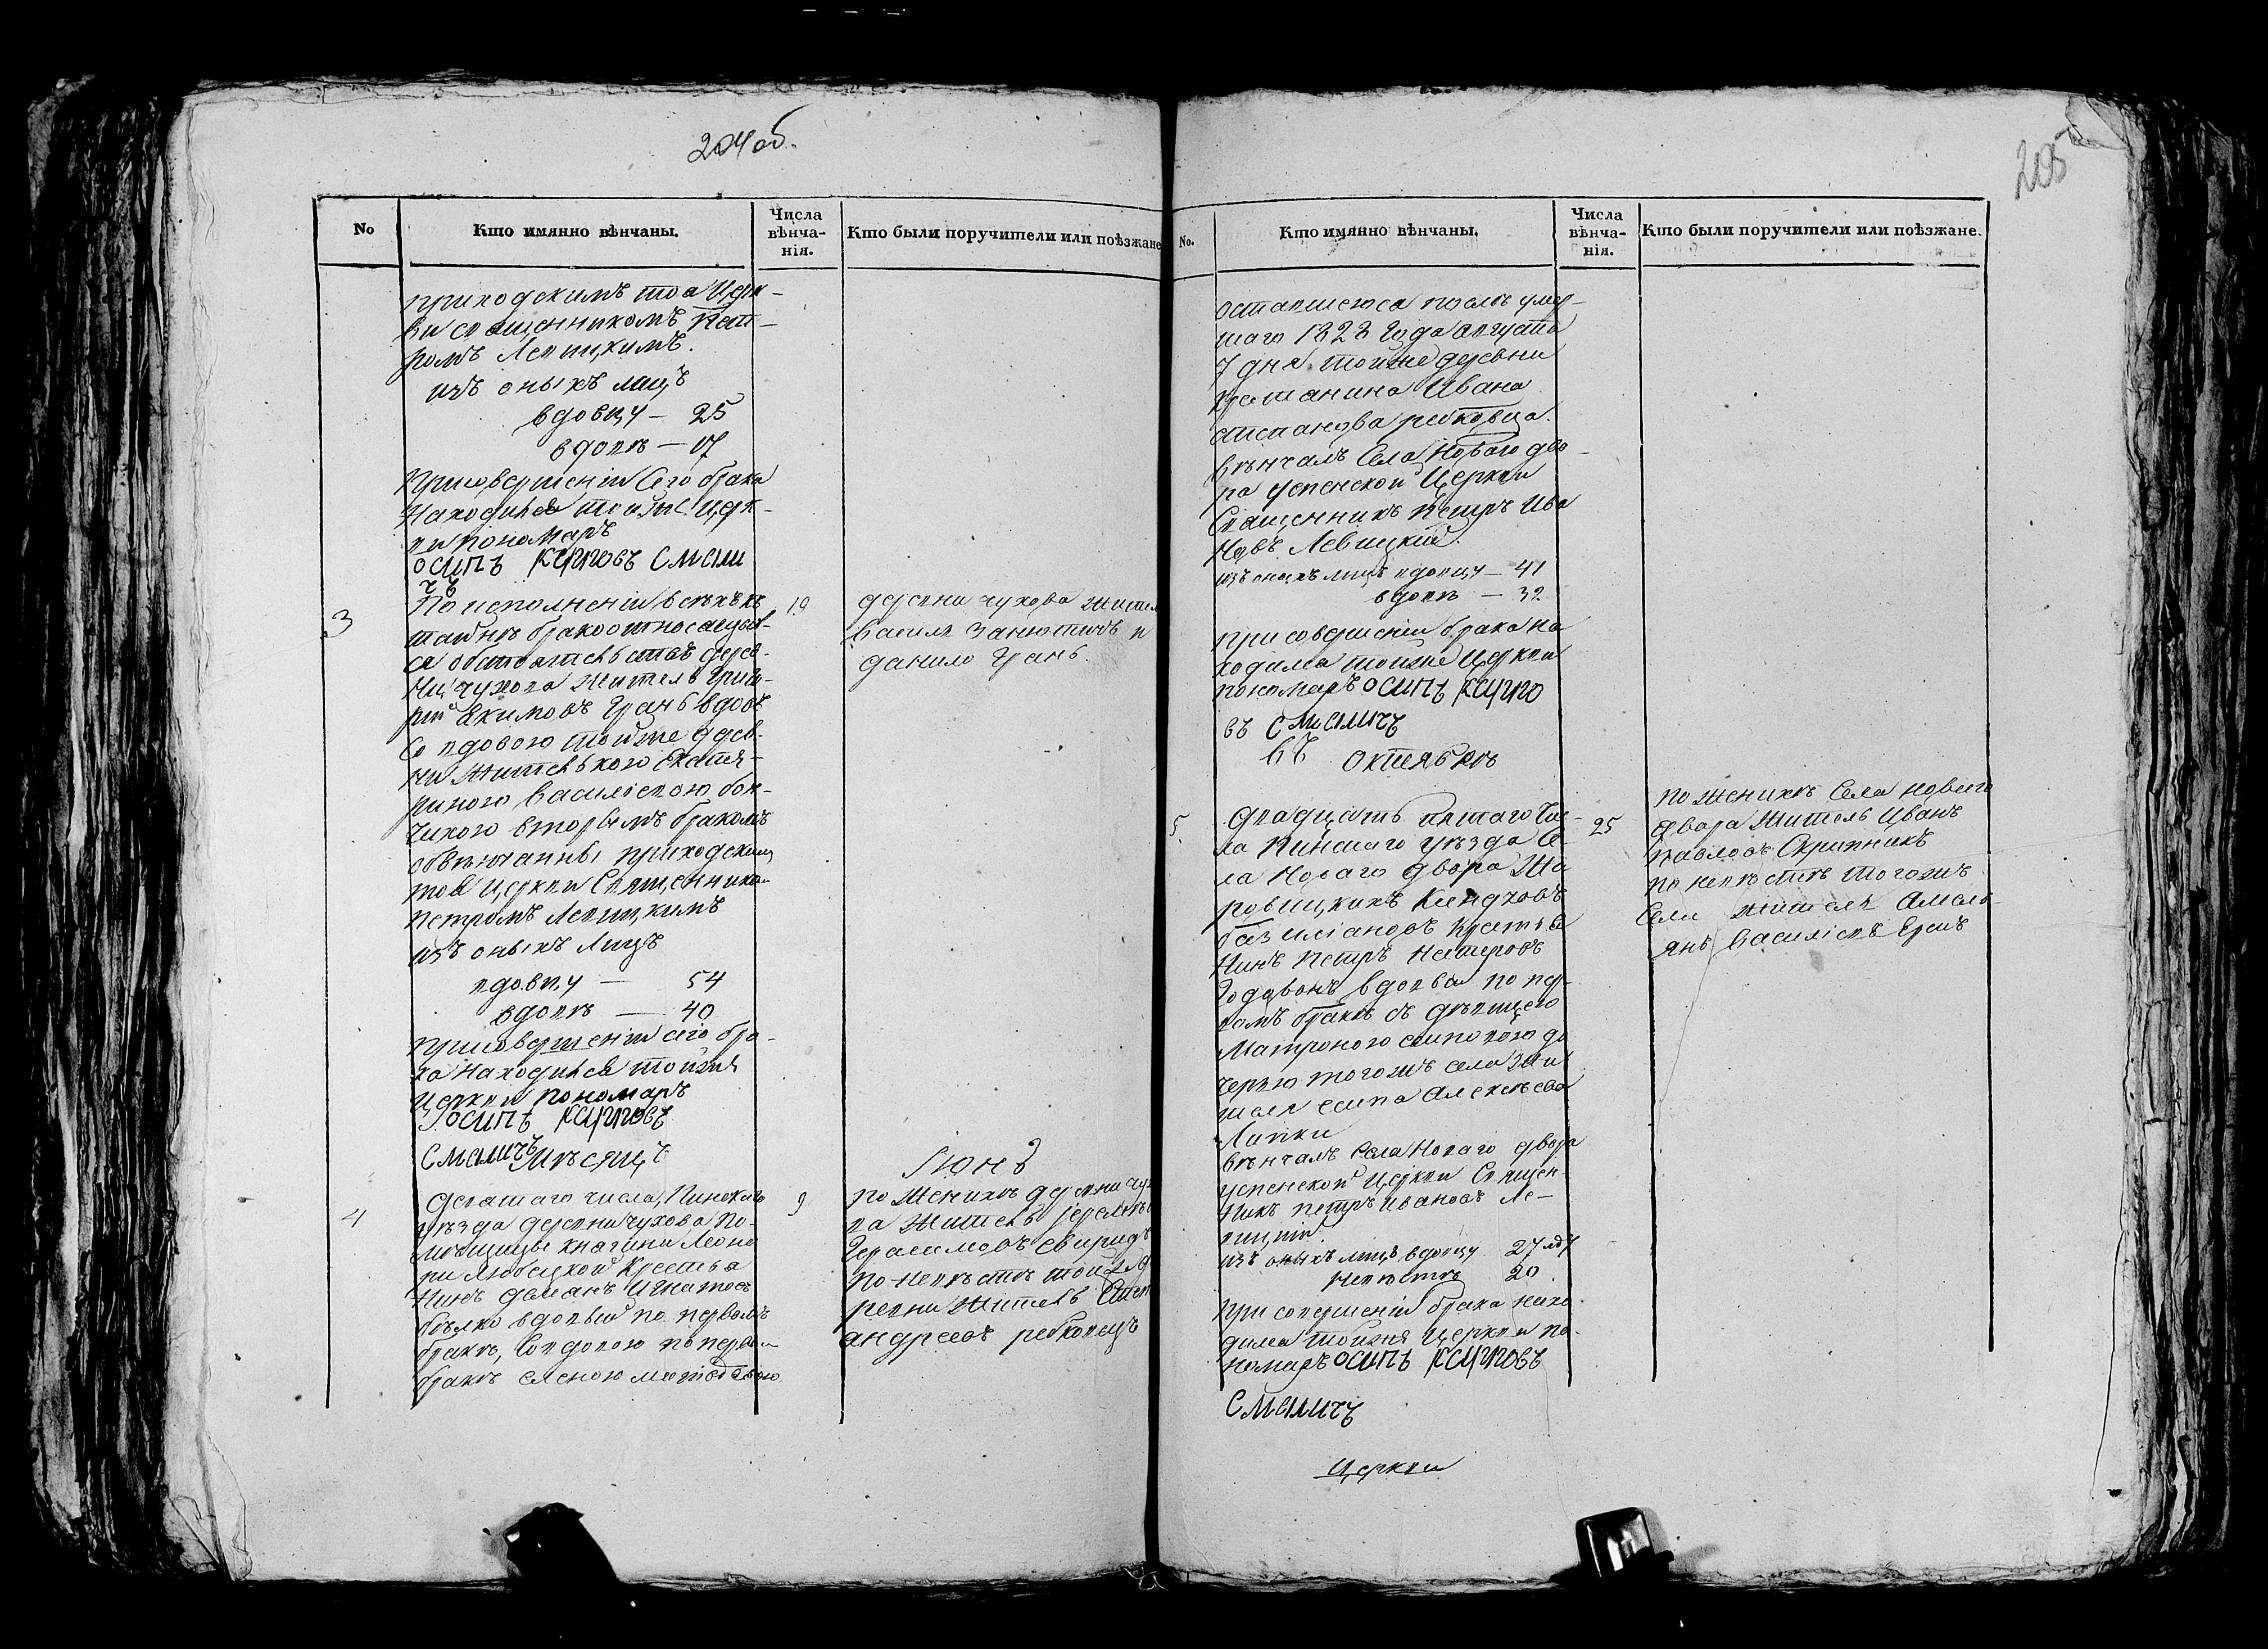 204 об.
205
No
Кто имянно вѣнчаны.
Числа вѣнча-нія.
Кто были поручители или поѣзжане
приходскимъ тоя Церк-
ви священникомъ Пет-
ромъ Левицкимъ.
изъ оныхъ лицъ
вдовцу — 25
вдовѣ — 17
При совершеніи Сего брака
Находился тойже Церк-
ви пономаръ
осипъ Смоли
чъ
3
По исполненіи всѣхъ къ
таинѣ брако относящих-
ся обстоятельствъ дерев-
ни чухова житель Григо-
рій Екимовъ Грань вдовъ
Со вдовою тойже дерев-
ни жителькою Екатe-
риною Василіевою
вторымъ бракомъ
обвѣнчанны приходскимъ
тоя Церкви Священником
Петромъ Левицкимъ
изъ оныхъ Лицъ
вдовцу — 54
вдовѣ — 40
При совершеніи сего бра-
ка находился тойжя
Церкви пономаръ
осипъ
Смоличъ
10
деревни чухова жител
Василь и
данило Грань.
Мѣсяцъ
Іюнъ
4
девятаго числа, Пинскаго
уѣзда деревни чухова по-
мѣщицы княгини Леоно
ри Любецкой Крестья
нинъ демянъ Игнатовъ
вдовый по первомъ
бракѣ, Со вдовою по первом
бракѣ еленою
9
по женихѣ деревни чух
ва житель
Герасимовъ Свиридъ
по невѣстѣ тойже де
ревни житель
андреевъ ребковецъ
No.
Кто имянно вѣнчаны.
Числа вѣнча-нія.
Кто были поручители или поѣзжане.
оставшеюся послѣ умер-
шаго 1828 Года августа
7 дня тойже деревни
крестянина Ивана
степанова ребковца.
вѣнчалъ Села Новаго дво-
ра успенской Церкви
Священникъ Петръ Ива
новъ Левицкій.
изъ оныхъ лицъ вдовцу — 41
вдовѣ — 32
при совершеніи брака на
ходился тойже Церкви
пономаръ осипъ
въ Смоличъ
въ октябрѣ
5.
двадцать пятаго чис-
ла Пинскаго уѣзда Се-
ла Новаго двора
базиліановъ Крестья
нинъ Петръ Нестеровъ
вдовый по пер-
вомъ бракѣ съ дѣвицею
Матроною есиповою до
черью тогожъ села жи
теля есипа алексѣева
Липки
вѣнчалъ Села Новаго двора
успенской Церкви Священ
никъ Петръ Ивановъ Ле-
вицкій.
изъ оныхъ лицъ вдовцу 27 лѣт
невѣстѣ 20.
при совершеніи брака нахо
дился тойжя Церкви по-
номаръ осипъ
Смоличъ
25
по женихѣ Села новаго
двора житель Иванъ
Павловъ Скрипникъ
по невѣстѣ тогожъ
Села житель
янъ Василіевъ
Церкви